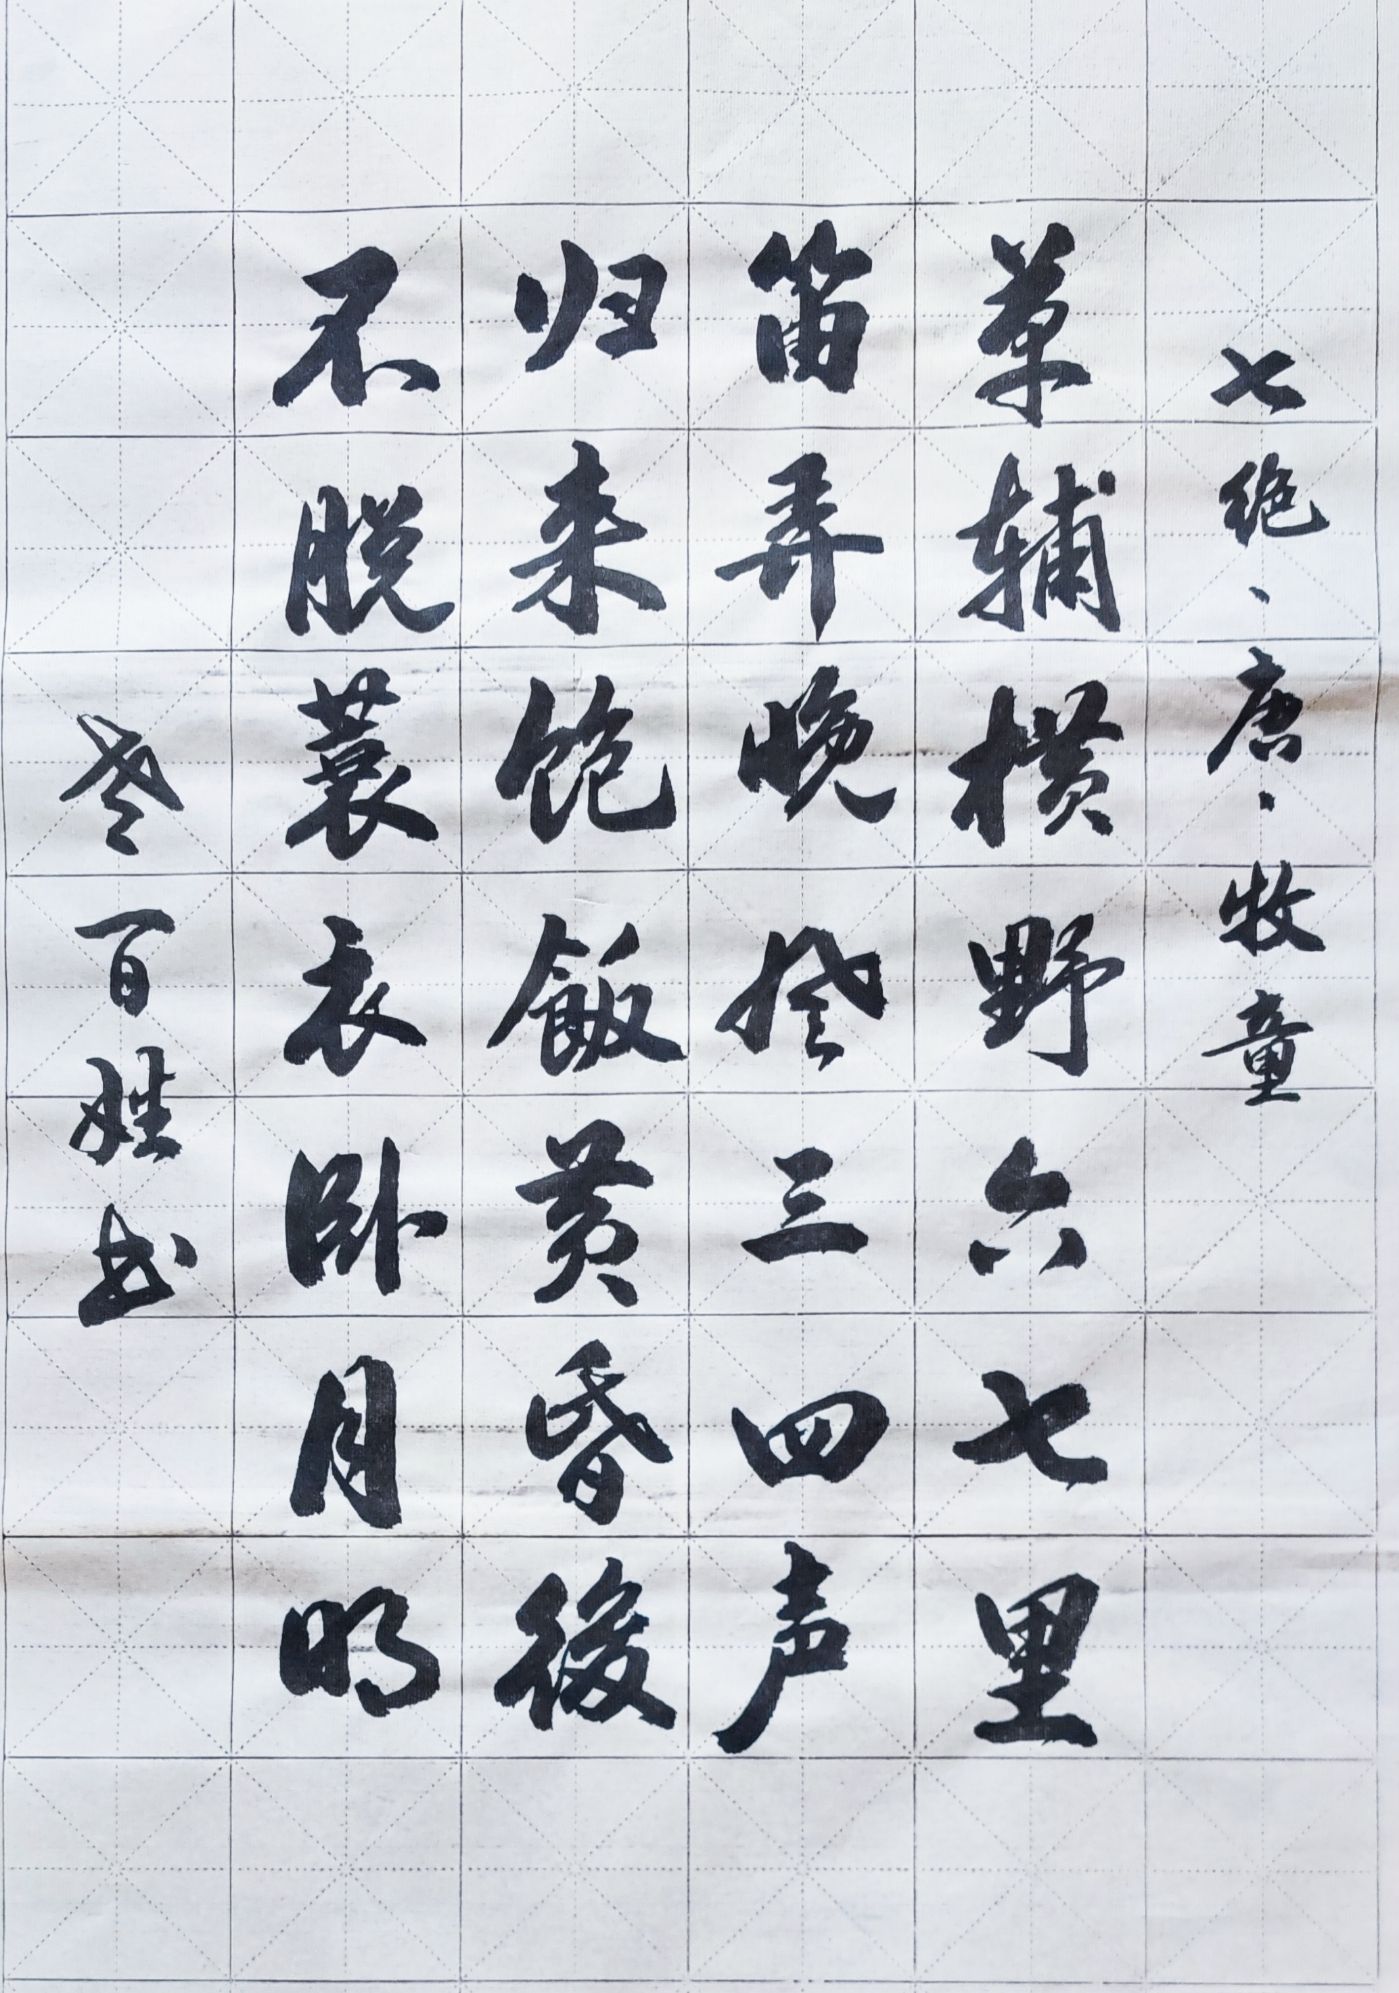 七绝、唐、牧童
草辅横野六七里
笛弄晚风三四声
归来饱飯黄昏後
不脱蓑衣卧月明
老百姓书